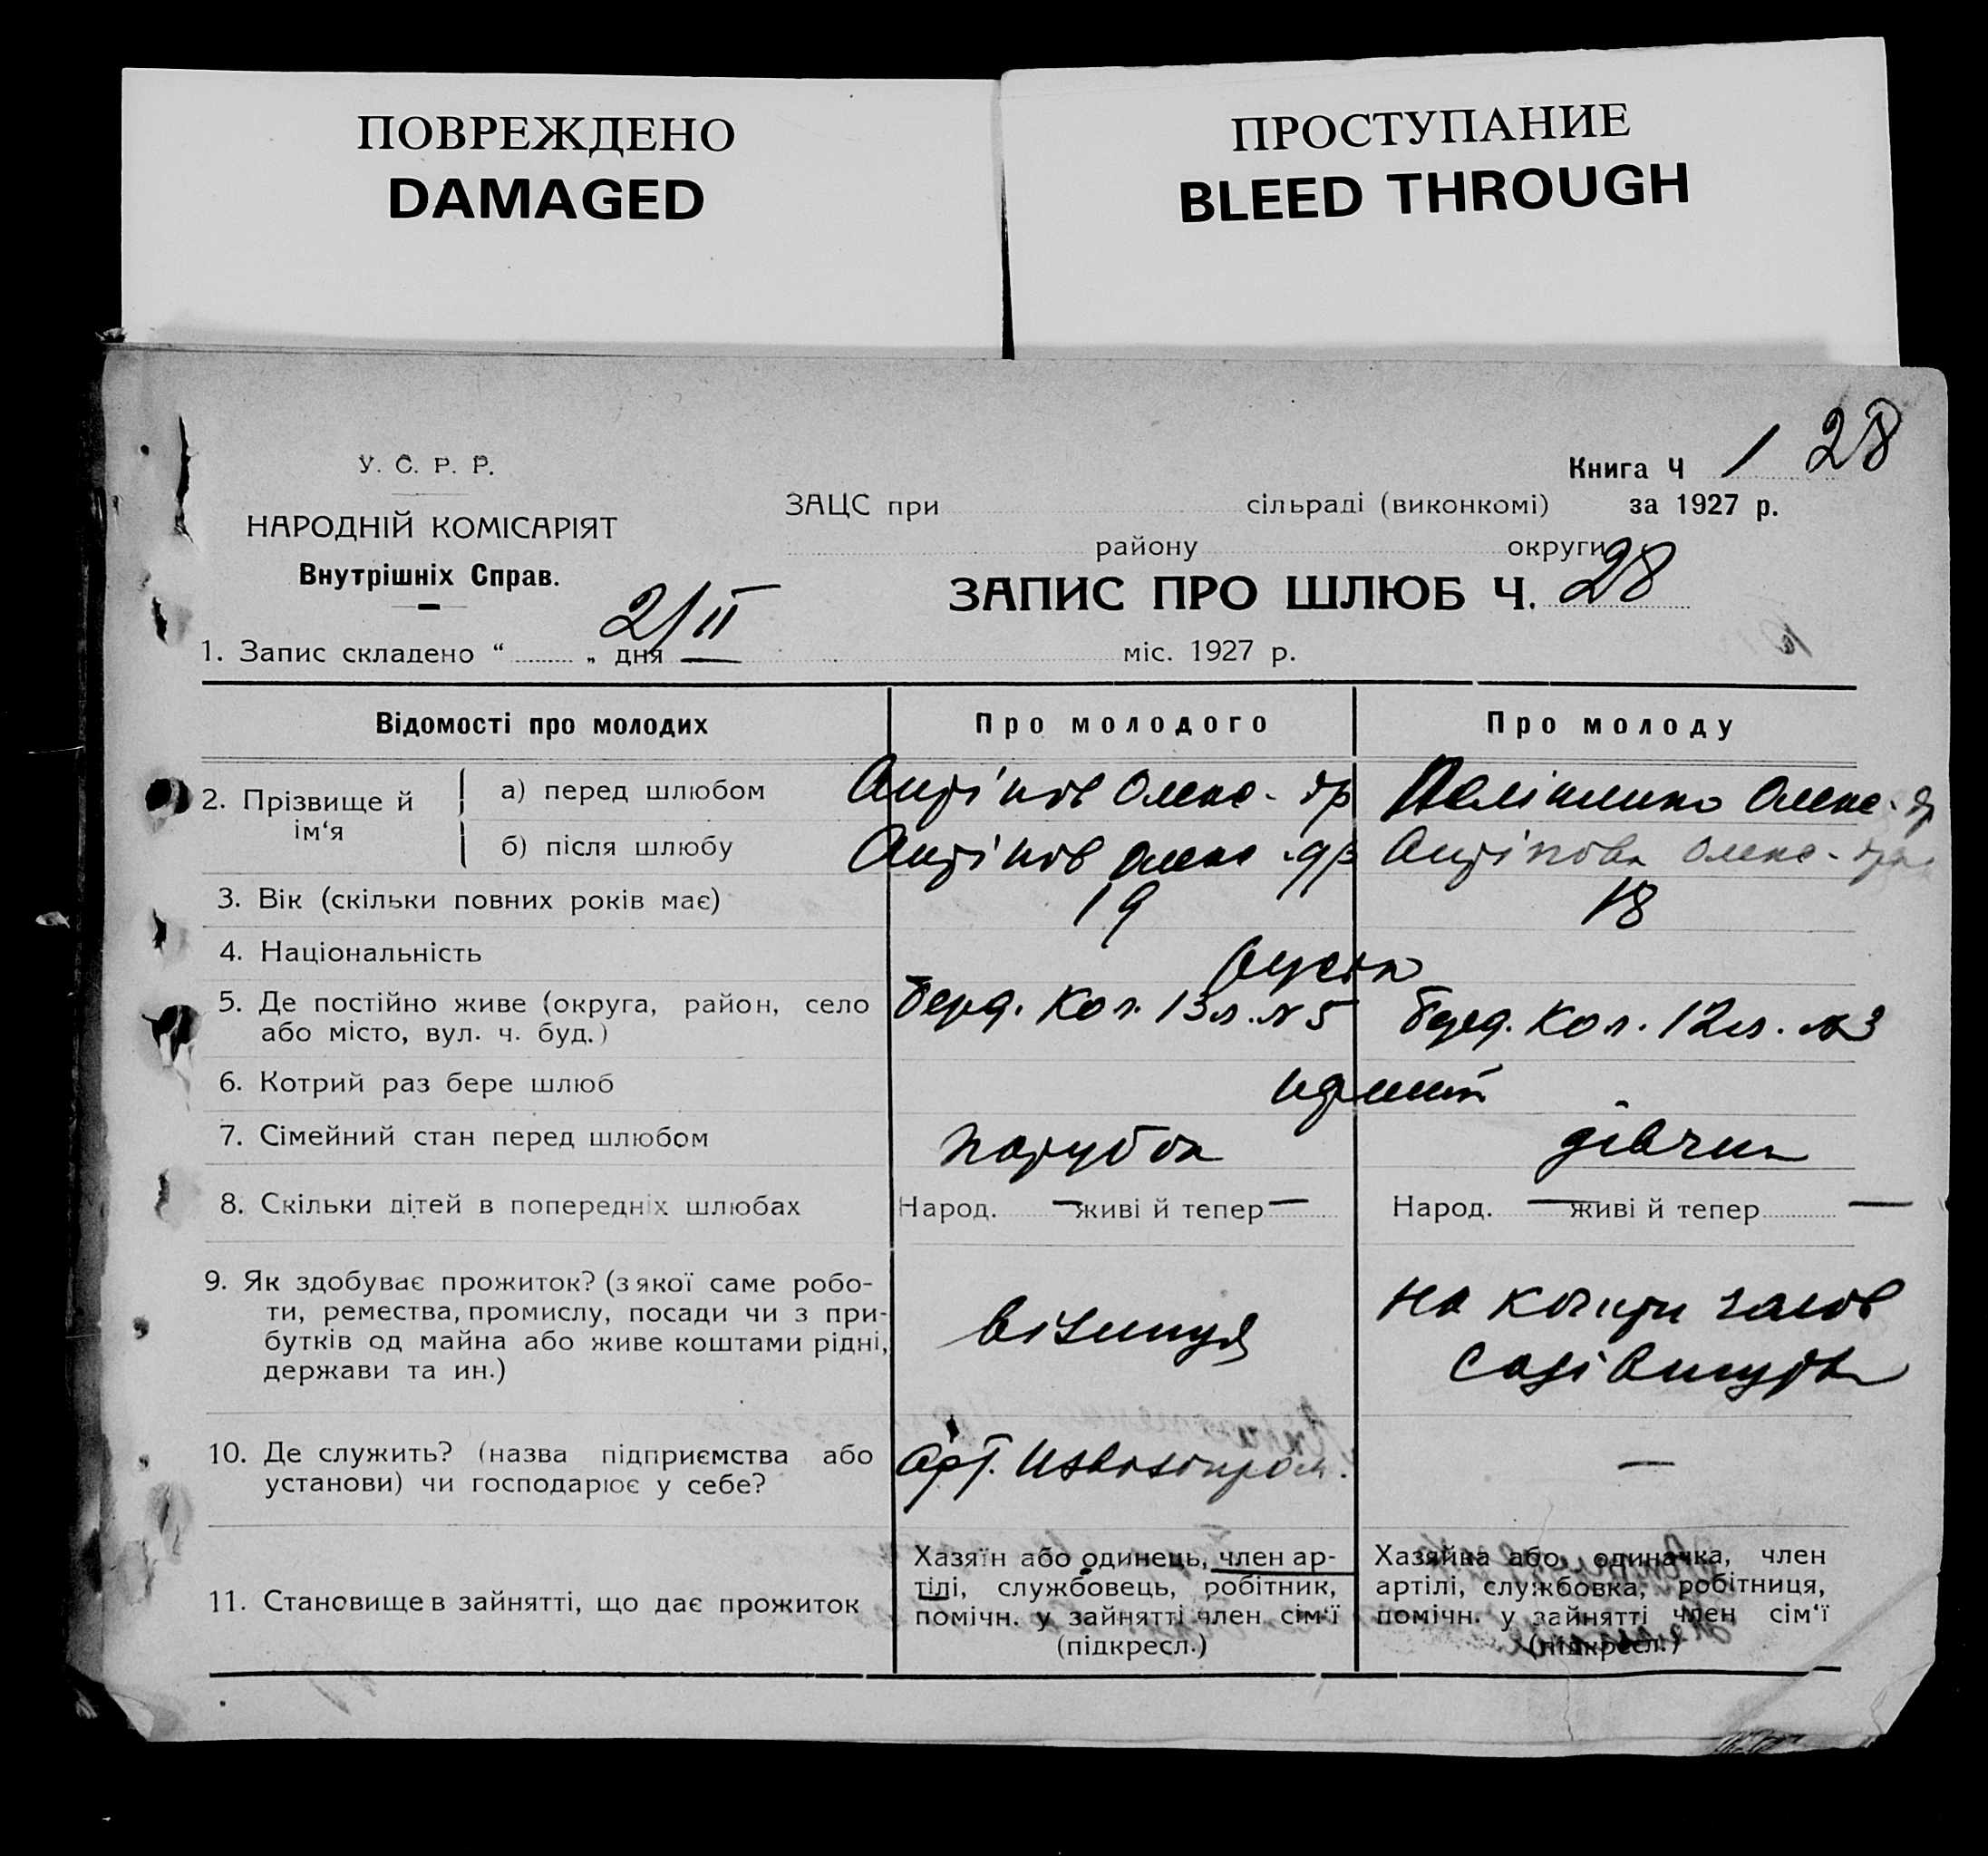 ПОВРЕЖДЕНО
DAMAGED
ПРОСТУПАНИЕ
BLEED THROUGH
28
У. С. Р. Р.
НАРОДНІЙ КОМІСАРІЯТ
Внутрішніх Справ.
Книга Ч 1
ЗАЦС при сільраді (виконкомі) за 1927 р.
району округи
ЗАПИС ПРО ШЛЮБ Ч. 28
1. Запис складено “ „ дня 2/II міс. 1927 р.
Відомості про молодих Про молодого Про молоду
2. Прізвище й ім‘я
а) перед шлюбом Антіпов Олекс-др Олекс-др
б) після шлюбу Антіпов Олекс-др Антіпова Олекс-дра
3. Вік (скільки повних років має) 19 18
4. Національність
5. Де постійно живе (округа, район, село Берд. Кол. 13 л. № 5 Берд. Кол. 12 л. № 3
або місто, вул. ч. буд.)
6. Котрий раз бере шлюб перший
7. Сімейний стан перед шлюбом парубок дівчина
8. Скільки дітей в попередніх шлюбах Народ. — живі й тепер — Народ. — живі й тепер —
9. Як здобуває прожиток? (з якої саме робо-
ти, ремества, промислу, посади чи з при-
бутків од майна або живе коштами рідні,
держави та ин.)
візниця
на кошти
10. Де служить? (назва підприємства або
установи) чи господарює у себе?
арт. Извозопром. —
11. Становище в зайнятті, що дає прожиток
Хазяїн або одинець, член ар-
тілі, службовець, робітник,
помічн. у зайнятті член сім‘ї
(підкресл.)
Хазяйка або одиначка, член
артілі, службовка, робітниця,
помічн. у зайнятті член сім‘ї
(підкресл.)